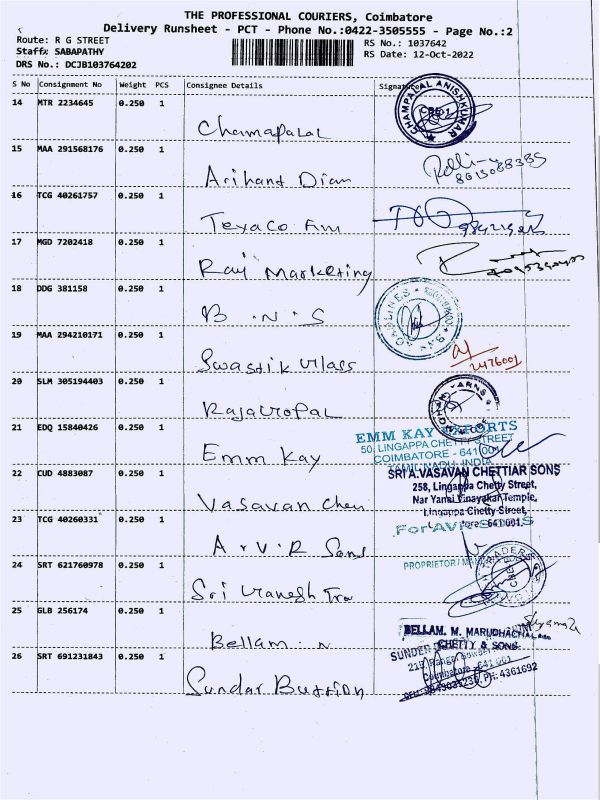 THE PROFESSIONAL COURIERS, Coimbatore
Delivery Runsheet - PCT - Phone No.:0422-3505555 - Page No.:2
Route: R G STREET
RS No.: 1037642
Staff: SABAPATHY
RS Date: 12-Oct-2022
DRS No.: DCJB103764202
S No Consignment No Weight PCS Consignee Details Signature
14 MTR 2234645 0.250 1
CHAMPALAL ANISHKUMAR
15 MAA 291568176 0.250 1 Arihant Diam
16 TCG 40261757 0.250 1 Texaco Am
17 MGD 7202418 0.250 1 Raj Marketing
18 DDG 381158 0.250 1 B.N.S
19 MAA 294210171 0.250 1 Swastik
2476001
20 SLM 305194403 0.250 1 Rajagopal
21 EDQ 15840426 0.250 1 Emm Kay
EMM KAY EXPORTS
50, LINGAPPA CHETTY STREET
COIMBATORE - 641 001
TAMIL NADU, INDIA
22 CUD 4883087 0.250 1 Vasavan Chen
SRI A.VASAVAN CHETTIAR SONS
258, Lingappa Chetty Street,
Nar Yansi Vinayakar Temple,
Lingappa Chetty Street,
641 001.
23 TCG 40260331 0.250 1 A.V.R Sons
For AVR SONS
PROPRIETOR
24 SRT 621760978 0.250 1 Sri Ganesh Tra
25 GLB 256174 0.250 1 Bellam. N
BELLAM. M. MARUDHACHALAM
CHETTY & SONS.
26 SRT 691231843 0.250 1 Sundar Button
SUNDER
641 001
PH: 4361692